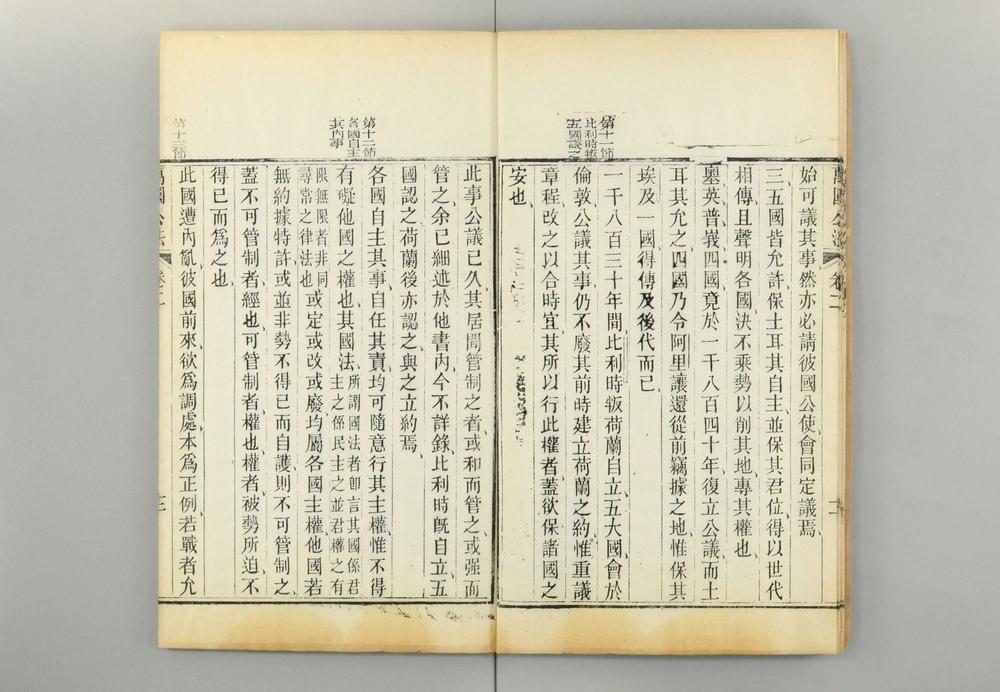 萬國公法 卷二
始可議其事然亦必請彼國公使會同定議焉
三五國皆允許保土耳其自主並保其君位得以世代
相傳且聲明各國決不乘勢以削其地專其權也
第十一節
比利時叛
五國議之
壓英普峩四國竟於一千八百四十年復立公議而土
耳其允之四國乃令阿里讓還從前竊據之地惟保其
埃及一國得傳及後代而已
一千八百三十年間比利時叛荷蘭自立五大國會於
倫敦公議其事仍不廢其前時建立荷蘭之約惟重議
章程改之以合時宜其所以行此權者蓋欲保諸國之
安也
此事公議已久其居間管制之者或和而管之或强而
管之余已細述於他書內今不詳錄比利時旣自立五
國認之荷蘭後亦認之與之立約焉
第十二節
各國自主
其內事
各國自主其事自任其責均可隨意行其主權惟不得
有礙他國之權也其國法所謂國法者卽言其國係君
主之係民主之並君權之有
限無限者非同
尋常之律法也或定或改或廢均屬各國主權他國若
無約據特許或並非勢不得已而自護則不可管制之
蓋不可管制者經也可管制者權也權者被勢所迫不
得已而爲之也
第十三節
此國遭內亂彼國前來欲爲調處本爲正例若戰者允
萬國公法 卷二 三